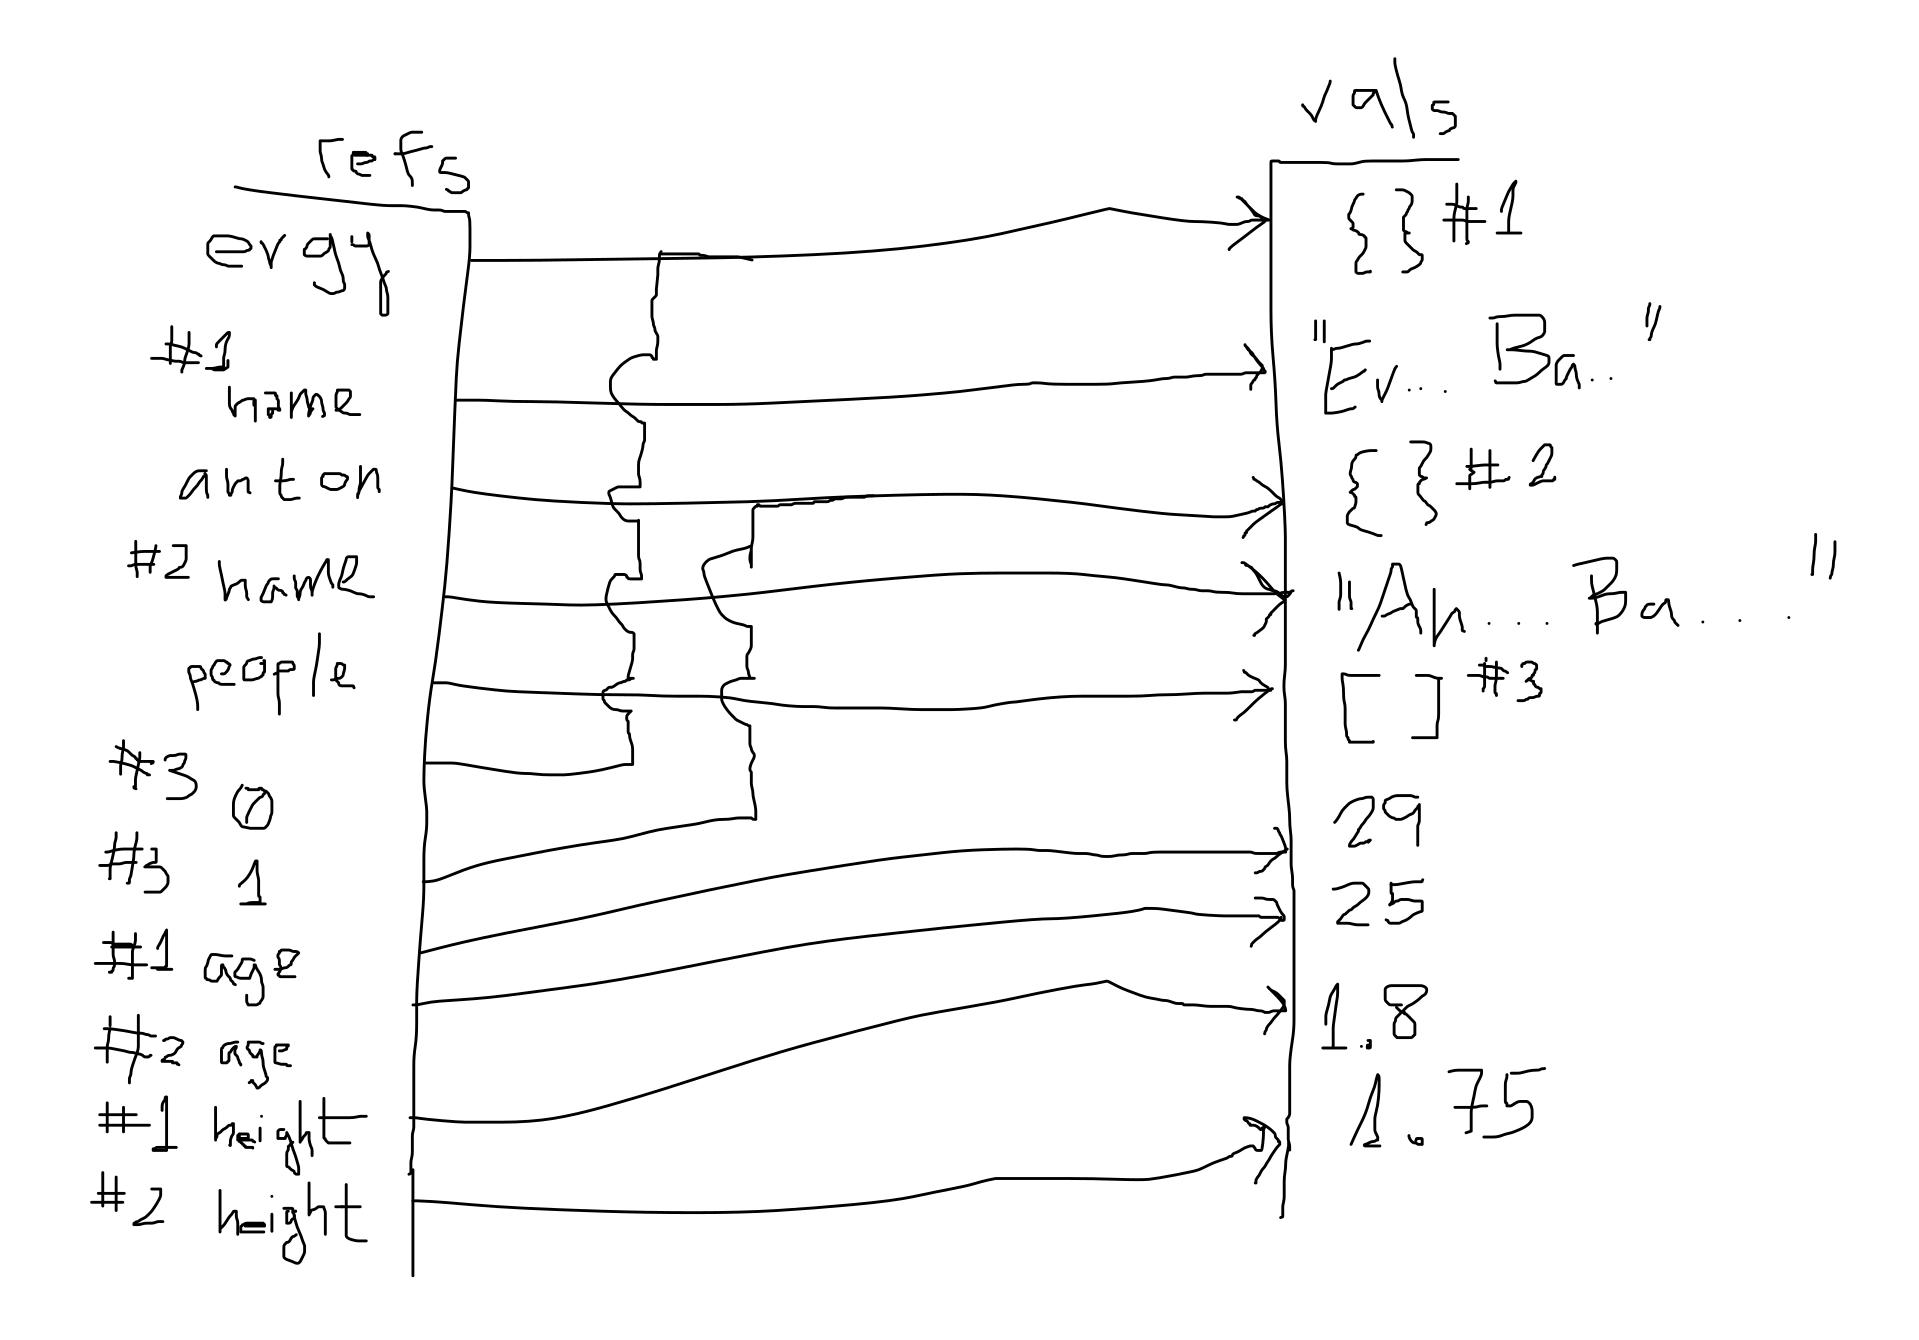 refs
ergy
#1
name
anton
#2 name
people
#3 0
#3 1
#1 age
#2 age
#1 height
#2 height
vals
{} #1
"Ev... Ba.."
{ } #2
"An.... Ba...."
[ ] #3
29
25
1.8
1.75